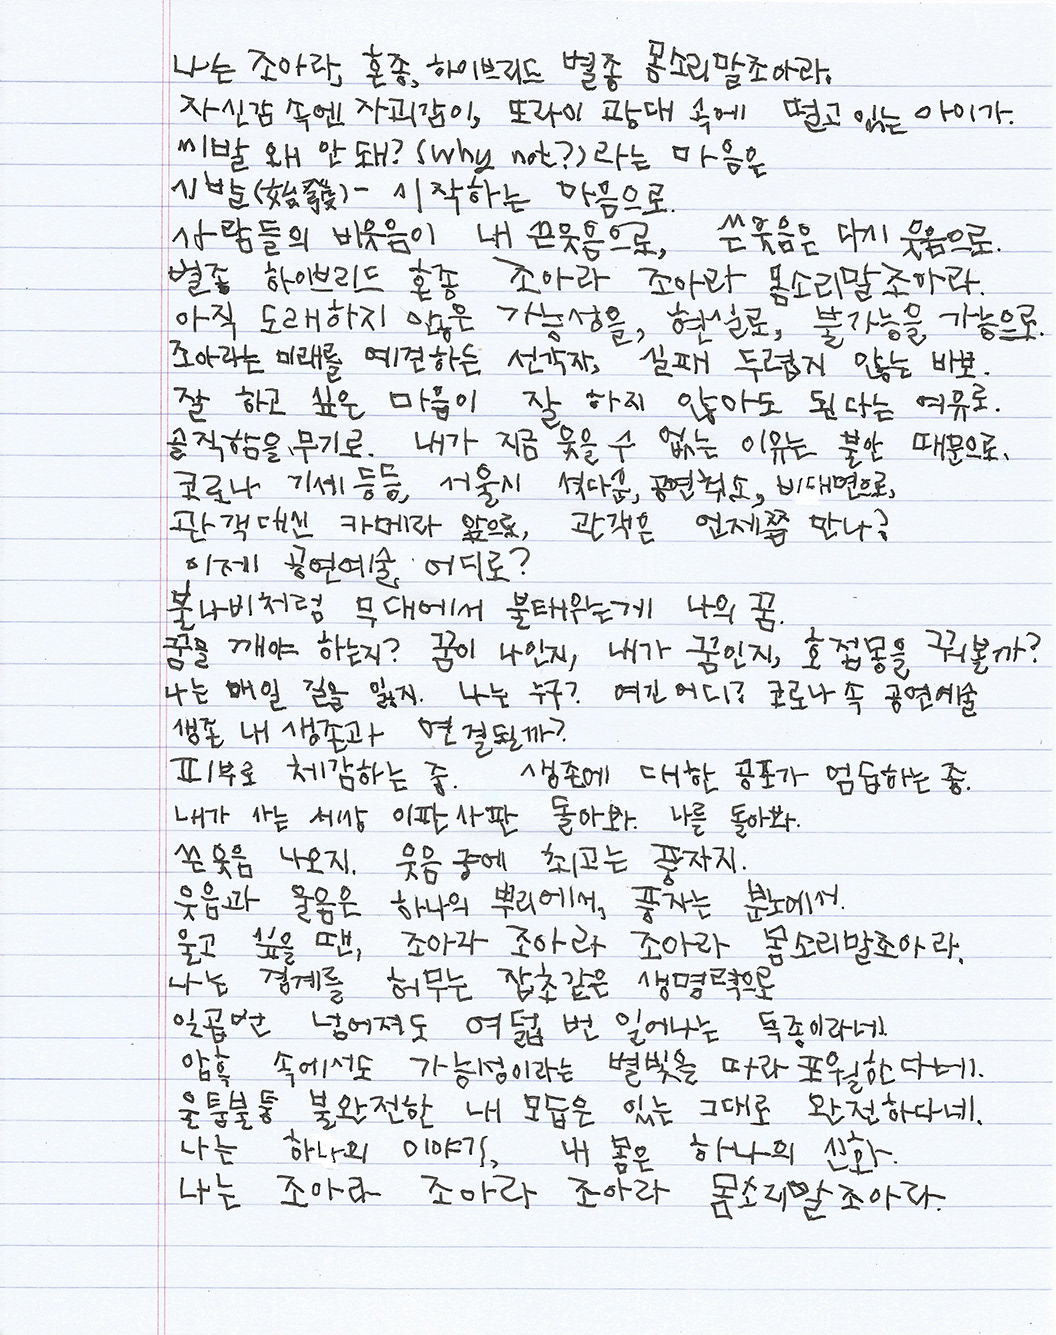 나는 조아라, 혼종, 하이브리드 별종 몸소리말조아라.
자신감 속엔 자괴감이, 또라이 광대 속에 떨고 있는 아이가.
씨발 왜 안 돼? (Why not?)라는 마음은
시발(始發)- 시작하는 마음으로.
사람들의 비웃음이 내 쓴웃음으로, 쓴웃음은 다시 웃음으로.
별종 하이브리드 혼종 조아라 조아라 몸소리말조아라.
아직 도래하지 않은 가능성을, 현실로, 불가능을 가능으로.
조아라는 미래를 예견하는 선각자, 실패 두렵지 않는 바보.
잘 하고 싶은 마음이 잘 하지 않아도 된다는 여유로.
솔직함을 무기로. 내가 지금 웃을 수 없는 이유는 불안 때문으로.
코로나 기세등등, 서울시 셧다운, 공연취소, 비대면으로,
관객대신 카메라 앞으로, 관객은 언제쯤 만나?
이제 공연예술, 어디로?
불나비처럼 무대에서 불태우는게 나의 꿈.
꿈을 깨야 하는지? 꿈이 나인지, 내가 꿈인지, 호접몽을 꿔볼까?
나는 매일 길을 잃지. 나는 누구? 여긴 어디? 코로나 속 공연예술
생존 내 생존과 연결될까?
피부로 체감하는 중. 생존에 대한 공포가 엄습하는 중.
내가 사는 세상 이판사판 돌아와. 나를 돌아봐.
쓴웃음 나오지. 웃음 중에 최고는 풍자지.
웃음과 울음은 하나의 뿌리에서, 풍자는 분노에서.
울고 싶을 땐, 조아라 조아라 조아라 몸소리말조아라.
나는 경계를 허무는 잡초같은 생명력으로
일곱번 넘어져도 여덟 번 일어나는 독종이라네.
암흑 속에서도 가능성이라는 별빛을 따라 포월한다네.
울퉁불퉁 불완전한 내 모습은 있는 그대로 완전하다네.
나는 하나의 이야기, 내 몸은 하나의 신화.
나는 조아라 조아라 조아라 몸소리말조아라.